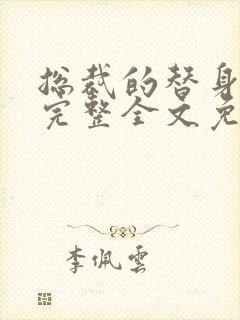 总裁的替身
完整全文免
李佩雲